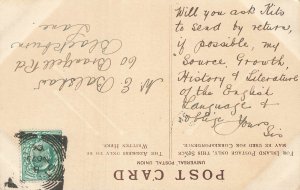 Will you ask Kits
to send by return,
if possible, my
Source, Growth,
History & Literature
of the English
Language &
oblige Yours,
Sis
M E Balshaw
60
Rd
Blackburn
Lane
FOR INLAND POSTAGE ONLY, THIS SPACE
MAY BE USED FOR CORRESPONDENCE.
THE ADDRESS ONLY TO BE
WRITTEN HERE.
POST CARD
UNIVERSAL POSTAL UNION